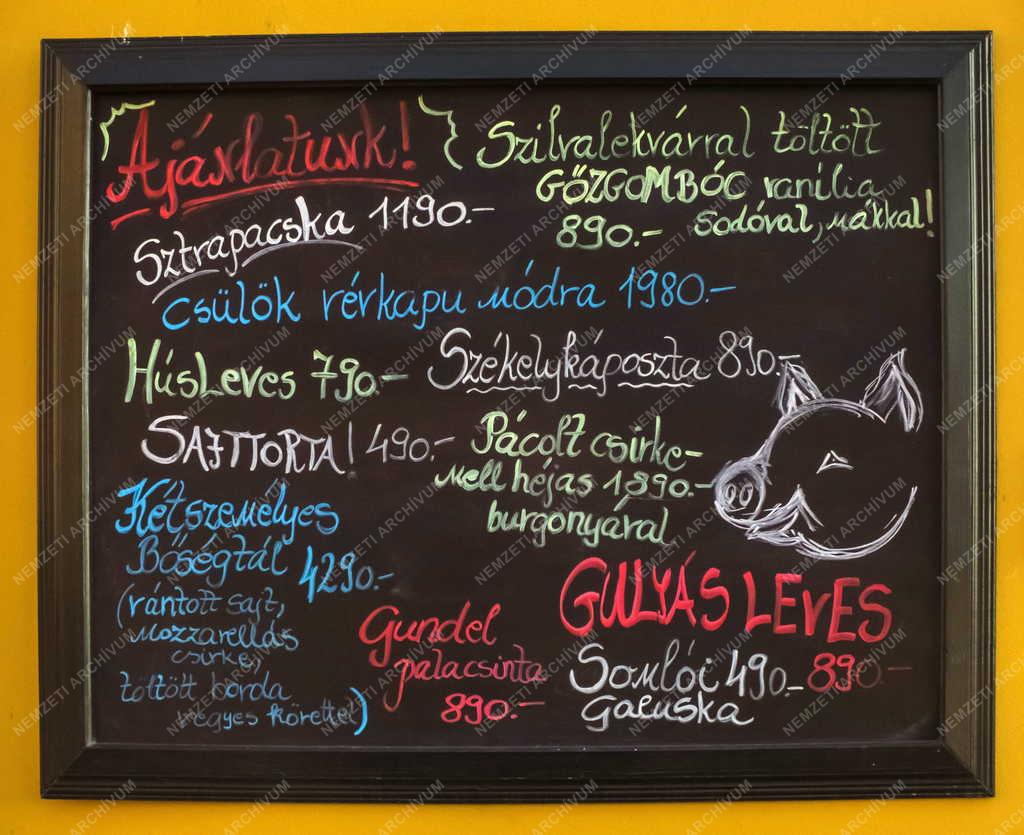 Ajánlatunk!
Sztrapacska 1190.-
Szilvalekvárral töltött
GŐZGOMBÓC vanília
890.- sodóval, mákkal!
csülök révkapu módra 1980.-
HúsLeves 790.-
Székelykáposzta 890.-
SAJTTORTA! 490.-
Pácolt csirke-
mell héjas 1890.-
burgonyával
Kétszemélyes
Bőségtál 4290.-
(rántott sajt,
mozzarellás
csirke,
töltött borda
vegyes körettel)
Gundel
palacsinta
890.-
GULYÁS LEVES
890.-
Somlói 490.-
Galuska
NEMZETI ARCHÍVUM